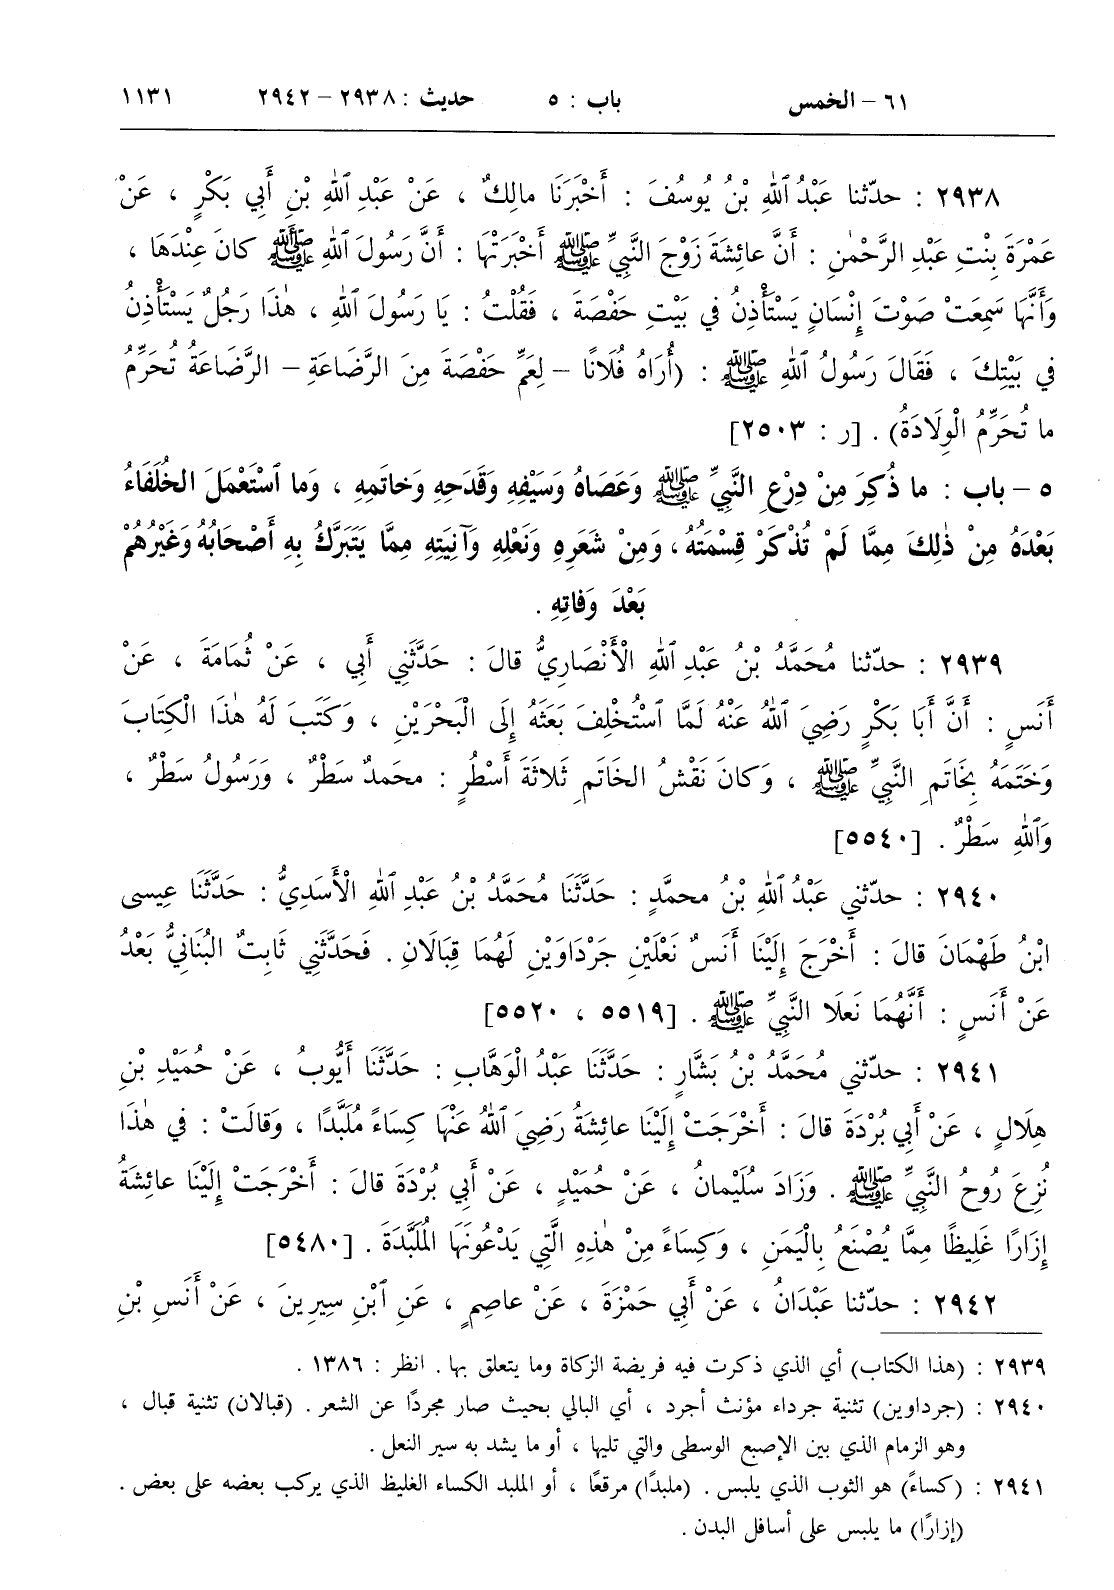 ٦١ – الخمس باب : ٥ حديث : ٢٩٣٨ – ٢٩٤٢ ١١٣١
٢٩٣٨ : حدّثنا عَبْدُ ٱللهِ بْنُ يُوسُفَ : أَخْبَرَنَا مالِكٌ ، عَنْ عَبْدِ ٱللهِ بْنِ أَبِي بَكْرٍ ، عَنْ
عَمْرَةَ بِنْتِ عَبْدِ الرَّحْمٰنِ : أَنَّ عائِشَةَ زَوْجَ النَّبِيِّ ﷺ أَخْبَرَتْهَا : أَنَّ رَسُولَ ٱللهِ ﷺ كانَ عِنْدَهَا ،
وَأَنَّهَا سَمِعَتْ صَوْتَ إِنْسَانٍ يَسْتَأْذِنُ في بَيْتِ حَفْصَةَ ، فَقُلْتُ : يَا رَسُولَ ٱللهِ ، هٰذَا رَجُلٌ يَسْتَأْذِنُ
في بَيْتِكَ ، فَقَالَ رَسُولُ ٱللهِ ﷺ : (أُرَاهُ فُلَانًا – لِعَمِّ حَفْصَةَ مِنَ الرَّضَاعَةِ – الرَّضَاعَةُ تُحَرِّمُ
ما تُحَرِّمُ الْوِلَادَةُ) . [ر : ٢٥٠٣]
٥ – باب : ما ذُكِرَ مِنْ دِرْعِ النَّبِيِّ ﷺ وَعَصَاهُ وَسَيْفِهِ وَقَدَحِهِ وَخاتَمِهِ ، وَما ٱسْتَعْمَلَ الخُلَفَاءُ
بَعْدَهُ مِنْ ذٰلِكَ مِمَّا لَمْ تُذْكَرْ قِسْمَتُهُ، وَمِنْ شَعَرِهِ وَنَعْلِهِ وَآنِيَتِهِ مِمَّا يَتَبَرَّكُ بِهِ أَصْحَابُهُ وَغَيْرُهُمْ
بَعْدَ وَفاتِهِ .
٢٩٣٩ : حدّثنا مُحَمَّدُ بْنُ عَبْدِ ٱللهِ الْأَنْصَارِيُّ قالَ : حَدَّثَنِي أَبِي ، عَنْ ثُمَامَةَ ، عَنْ
أَنَسٍ : أَنَّ أَبَا بَكْرٍ رَضِيَ ٱللهُ عَنْهُ لَمَّا ٱسْتُخْلِفَ بَعَثَهُ إِلَى الْبَحْرَيْنِ ، وَكَتَبَ لَهُ هٰذَا الْكِتَابَ
وَخَتَمَهُ بِخَاتَمِ النَّبِيِّ ﷺ ، وَكانَ نَقْشُ الخَاتَمِ ثَلَاثَةَ أَسْطُرٍ : محمدٌ سَطْرٌ ، وَرَسُولُ سَطْرٌ ،
وَٱللهِ سَطْرٌ . [٥٥٤٠]
٢٩٤٠ : حدّثني عَبْدُ ٱللهِ بْنُ محمَّدٍ : حَدَّثَنَا مُحَمَّدُ بْنُ عَبْدِ ٱللهِ الْأَسَدِيُّ : حَدَّثَنَا عِيسى
ابْنُ طَهْمَانَ قالَ : أَخْرَجَ إِلَيْنَا أَنَسٌ نَعْلَيْنِ جَرْدَاوَيْنِ لَهُمَا قِبَالَانِ . فَحَدَّثَنِي ثَابِتٌ الْبُنَانِيُّ بَعْدُ
عَنْ أَنَسٍ : أَنَّهُمَا نَعْلَا النَّبِيِّ ﷺ . [٥٥١٩ ، ٥٥٢٠]
٢٩٤١ : حدّثني مُحَمَّدُ بْنُ بَشَّارٍ : حَدَّثَنَا عَبْدُ الْوَهَّابِ : حَدَّثَنَا أَيُّوبُ ، عَنْ حُمَيْدِ بْنِ
هِلَالٍ ، عَنْ أَبِي بُرْدَةَ قالَ : أَخْرَجَتْ إِلَيْنَا عائِشَةُ رَضِيَ ٱللهُ عَنْهَا كِسَاءً مُلَبَّدًا ، وَقالَتْ : في هٰذَا
نُزِعَ رُوحُ النَّبِيِّ ﷺ . وَزَادَ سُلَيْمانُ ، عَنْ حُمَيْدٍ ، عَنْ أَبِي بُرْدَةَ قالَ : أَخْرَجَتْ إِلَيْنَا عائِشَةُ
إِزَارًا غَلِيظًا مِمَّا يُصْنَعُ بِالْيَمَنِ ، وَكِسَاءً مِنْ هٰذِهِ الَّتِي يَدْعُونَهَا الْمُلَبَّدَةَ . [٥٤٨٠]
٢٩٤٢ : حدّثنا عَبْدَانُ ، عَنْ أَبِي حَمْزَةَ ، عَنْ عاصِمٍ ، عَنِ ٱبْنِ سِيرِينَ ، عَنْ أَنَسِ بْنِ
٢٩٣٩ : (هذا الكتاب) أي الذي ذكرت فيه فريضة الزكاة وما يتعلق بها . انظر : ١٣٨٦ .
٢٩٤٠ : (جرداوين) تثنية جرداء مؤنث أجرد ، أي البالي بحيث صار مجردًا عن الشعر . (قبالان) تثنية قبال ،
وهو الزمام الذي بين الإصبع الوسطى والتي تليها ، أو ما يشد به سير النعل .
٢٩٤١ : (كساءً) هو الثوب الذي يلبس . (ملبدًا) مرقعًا ، أو الملبد الكساء الغليظ الذي يركب بعضه على بعض .
(إزارًا) ما يلبس على أسافل البدن .